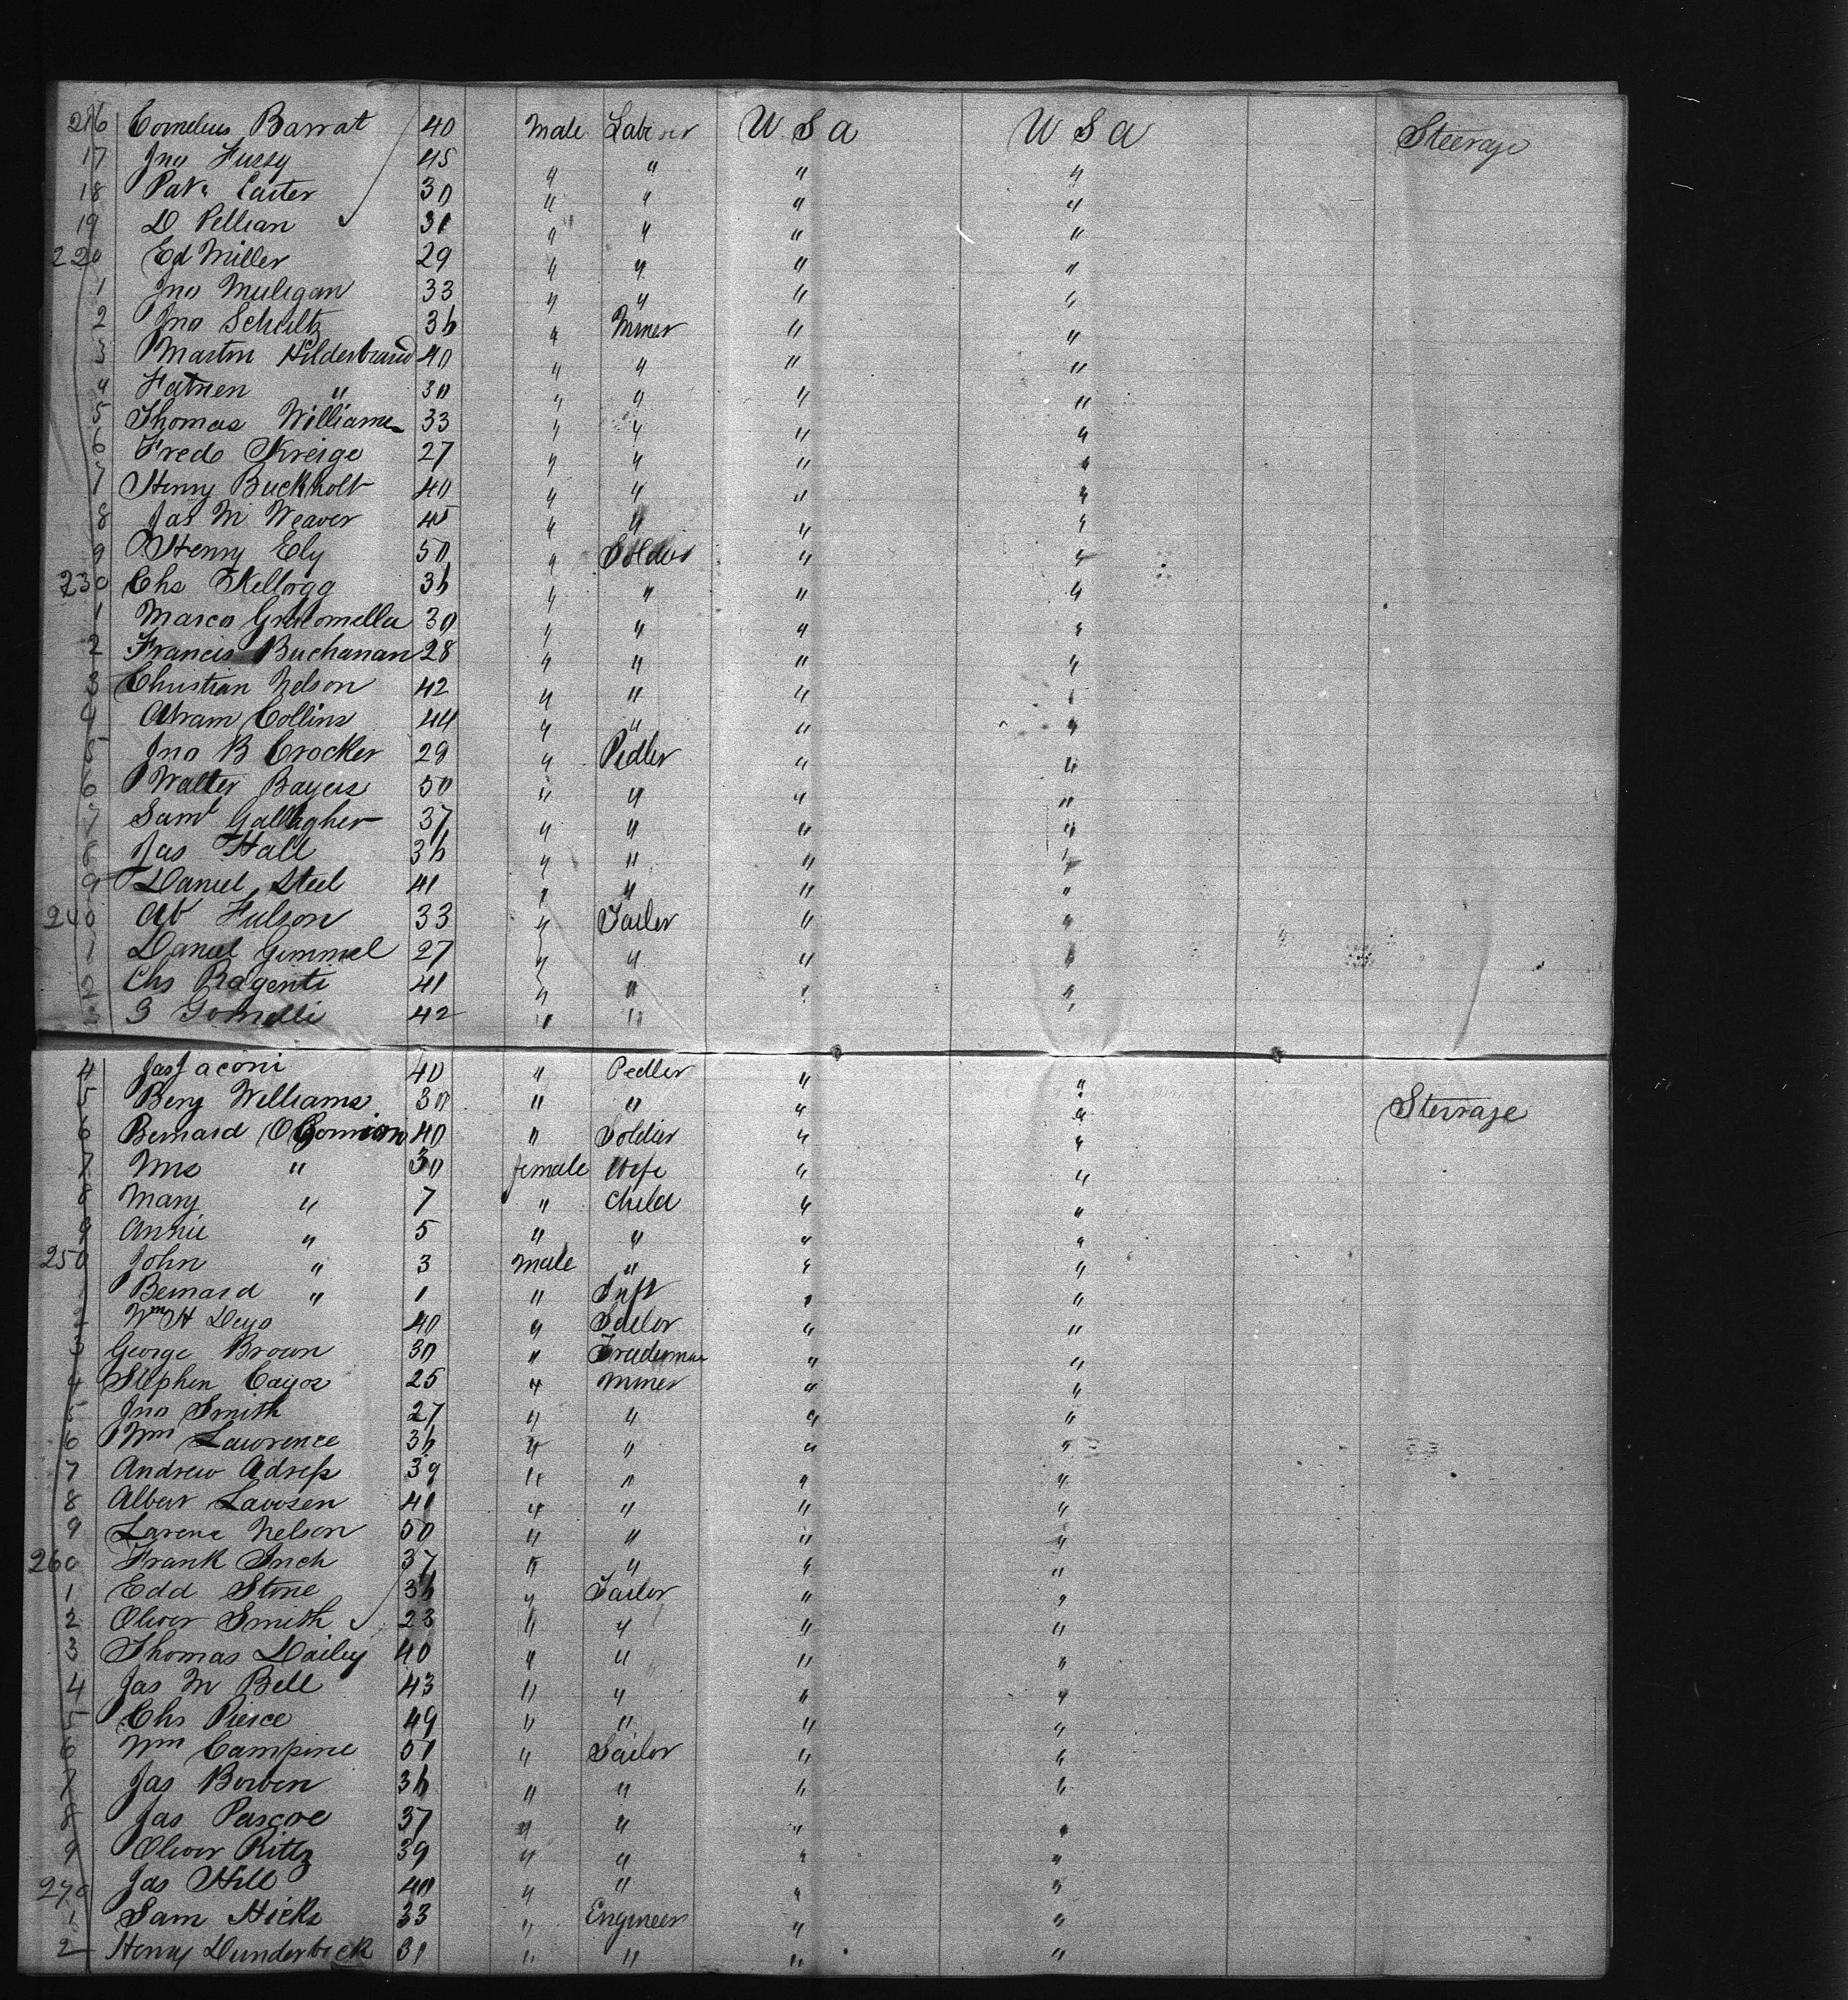 216 Cornelius Barrat 40 Male Laborer U S A U S A Steerage
17 Jno Fussy 45 " " " "
18 Patk Carter 30 " " " "
19 D Pellian 31 " " " "
220 Ed Miller 29 " " " "
1 Jno Muligan 33 " " " "
2 Jno Schultz 36 " Miner " "
3 Martin Hilderbrand 40 " " " "
4 " 30 " " " "
5 Thomas Williams 33 " " " "
6 Fredo Kreige 27 " " " "
7 Henry Buckholt 40 " " " "
8 Jas M Weaver 45 " " " "
9 Henry Ely 50 " Soldier " "
230 Chs Kellogg 36 " " " "
1 Marco 30 " " " "
2 Francis Buchanan 28 " " " "
3 Christian Nelson 42 " " " "
4 Abram Collins 44 " " " "
5 Jno B Crocker 29 " Pedler " "
6 Walter Bayers 50 " " " "
7 Saml Gallagher 37 " " " "
8 Jas Hall 36 " " " "
9 Daniel Steel 41 " " " "
240 Ab Fulson 33 " Tailer " "
1 Daniel Gimmel 27 " " " "
2 Chs Ragenti 41 " " " "
3 G Gomelli 42 " " " "
4 Jas Jaconi 40 " Pedler " "
5 Benj Williams 30 " " " " Sterrage
6 Bernard O Gorman 40 " Soldier " "
7 Mrs " 30 female Wife " "
8 Mary " 7 " Child " "
9 Annie " 5 " " " "
250 John " 3 Male " " "
1 Bernard " 1 " Inft " "
2 Wm H Deyo 40 " Sailor " "
3 George Brown 30 " Tradesman " "
4 Stephen Cayor 25 " Miner " "
5 Jno Smith 27 " " " "
6 Wm Lawrence 36 " " " "
7 Andrew 39 " " " "
8 Albert Lawsen 41 " " " "
9 Larene Nelson 50 " " " "
260 Frank Inch 37 " " " "
1 Edd Stone 36 " Tailor " "
2 Oliver Smith 23 " " " "
3 Thomas Dailey 40 " " " "
4 Jas M Bell 43 " " " "
5 Chs Pierce 49 " " " "
6 Wm Campine 51 " Sailor " "
7 Jas Bowen 36 " " " "
8 Jas Pascoe 37 " " " "
9 Oliver Rittz 39 " " " "
270 Jas Hill 40 " " " "
1 Sam Hicks 33 " Engineer " "
2 Henry Dunderbeck 31 " " " "